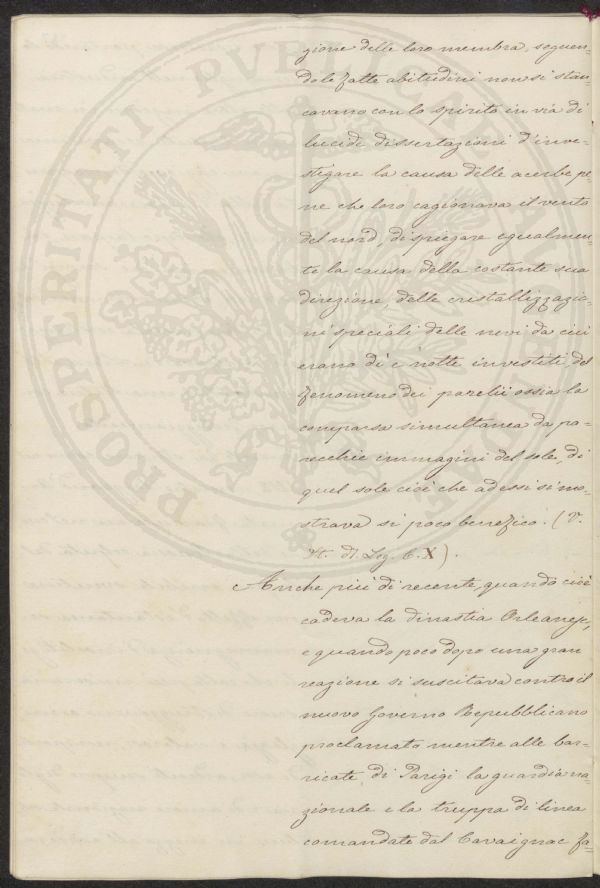 gione delle loro membra, seguen-
do le fatte abitudini non si stan-
cavano con lo spirito in via di
lucide dissertazioni d'inve-
stigare la causa delle acerbe pe-
ne che loro cagionava il vento
del nord, di spiegare egualmen-
te la causa della costante sua
direzione, delle cristallizzazio-
ni speciali delle nevi da cui
erano dì e notte investiti del
fenomeno dei parelii ossia la
comparsa simultanea da pa-
recchie immagini del sole, di
quel sole cioè che ad essi si mo-
strava si poco benefico. (V.
St. d. Sog. C. X).
Anche più di recente, quando cioè
cadeva la dinastia Orleanese,
e quando poco dopo una gran
reazione si suscitava contro il
nuovo Governo Repubblicano
proclamato mentre alle bar-
ricate di Parigi la guardia na-
zionale e la truppa di linea
comandate dal Cavaignac fa-
PROSPERITATI PUBLICAE